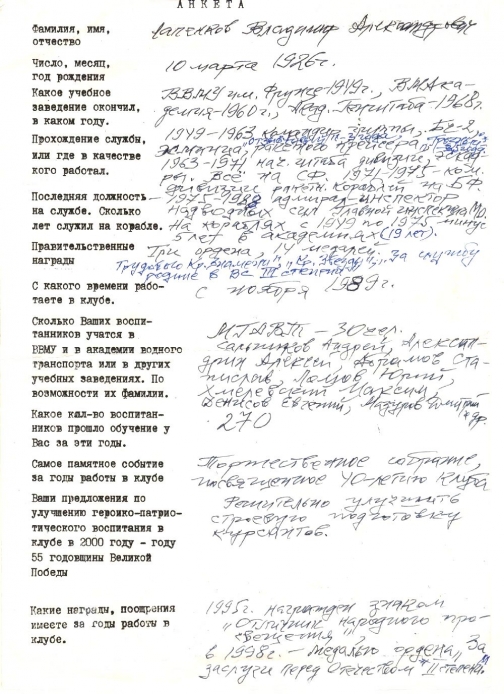 АНКЕТА
Фамилия, имя, Лаченков Владимир Александрович
отчество
Число, месяц, 10 марта 1926г.
год рождения
Какое учебное ВВМУ им. Фрунзе-1949г., ВМАка-
заведение окончил, демия-1960г., Акад. Генштаба-1968г.
в каком году.
Прохождение службы, 1949-1963 командир группы, БЧ-2,
или где в качестве эсминца,
кого работал. 1963-1971 нач. штаба дивизии, эскад
ры. Всё на СФ. 1971-1975-ком.
дивизии ракетн. кораблей на БФ.
Последняя должность - 1975-1988 адмирал-инспектор
на службе. Сколько надводных сил Главной инспекции МО.
лет служил на корабле. На кораблях с 1949 по 1975, минус
5 лет в академиях (19 лет).
Правительственные Три ордена, 14 медалей.
награды Трудового Кр. Знамени", "Кр. Звезды", "За службу
родине в ВС III степени",
С какого времени рабо- с ноября 1989г.
таете в клубе.
Сколько Ваших воспи- МГАВТ - 30 чел.
танников учатся в Сальников Андрей, Алексан-
ВВМУ и в академии водного дрин Алексей, Ста-
транспорта или в других нислав, Юрий,
учебных заведениях. По Хмелевский Максим,
возможности их фамилии. Денисов Евгений, Мазурин Дмитрий
и др.
Какое кол-во воспитан- 270
ников прошло обучение у
Вас за эти годы.
Самое памятное событие Торжественное собрание,
за годы работы в клубе посвященное 40-летию клуба
Ваши предложения по Решительно улучшить
улучшению героико-патрио- строевую подготовку
тического воспитания в курсантов.
клубе в 2000 году - году
55 годовщины Великой
Победы
Какие награды, поощрения 1995г. награжден знаком
имеете за годы работы в "Отличник народного про-
клубе. свещения",
в 1998г. - медалью ордена "За
заслуги перед Отечеством" II степени"